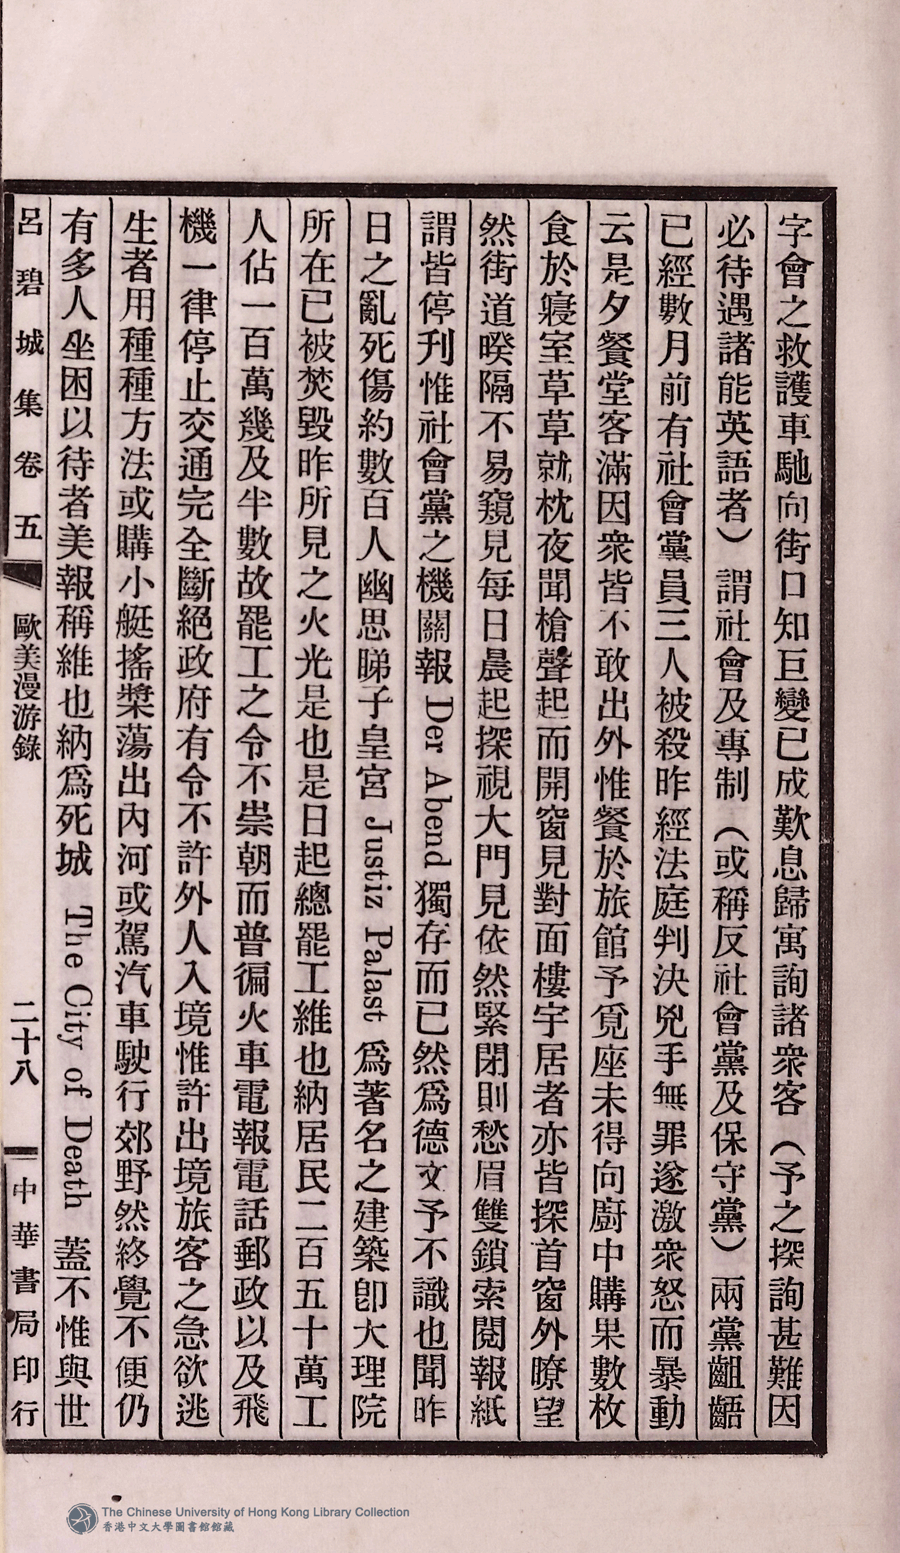 字會之救護車馳向街口知巨變已成歎息歸寓詢諸衆客（予之探詢甚難因
必待遇諸能英語者）謂社會及專制（或稱反社會黨及保守黨）兩黨齟齬
已經數月前有社會黨員三人被殺昨經法庭判決兇手無罪遂激衆怒而暴動
云是夕餐堂客滿因衆皆不敢出外惟餐於旅館予覓座未得向廚中購果數枚
食於寢室草草就枕夜聞槍聲起而開窗見對面樓宇居者亦皆探首窗外瞭望
然街道暌隔不易窺見每日晨起探視大門見依然緊閉則愁眉雙鎖索閱報紙
謂皆停刋惟社會黨之機關報 Der Abend 獨存而已然爲德文予不識也聞昨
日之亂死傷約數百人幽思睇子皇宮 Justiz Palast 爲著名之建築卽大理院
所在已被焚毀昨所見之火光是也是日起總罷工維也納居民二百五十萬工
人佔一百萬幾及半數故罷工之令不崇朝而普徧火車電報電話郵政以及飛
機一律停止交通完全斷絕政府有令不許外人入境惟許出境旅客之急欲逃
生者用種種方法或購小艇搖槳蕩出內河或駕汽車駛行郊野然終覺不便仍
有多人坐困以待者美報稱維也納爲死城 The City of Death 蓋不惟與世
呂碧城集卷五 歐美漫游錄 二十八 中華書局印行
The Chinese University of Hong Kong Library Collection
香港中文大學圖書館館藏